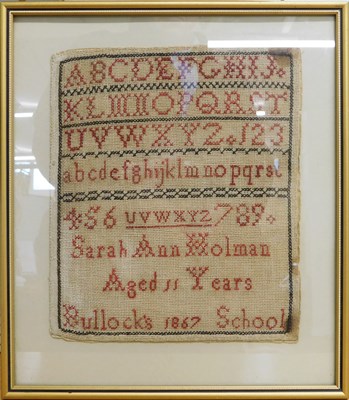 ABCDEFGHIJ
KLMNOPQRST
UVWXYZ. 123
abcdefghijklmnopqrst
456 UVWXYZ 789.
Sarah Ann Holman
Aged 11 Years
Bullock's 1867 School